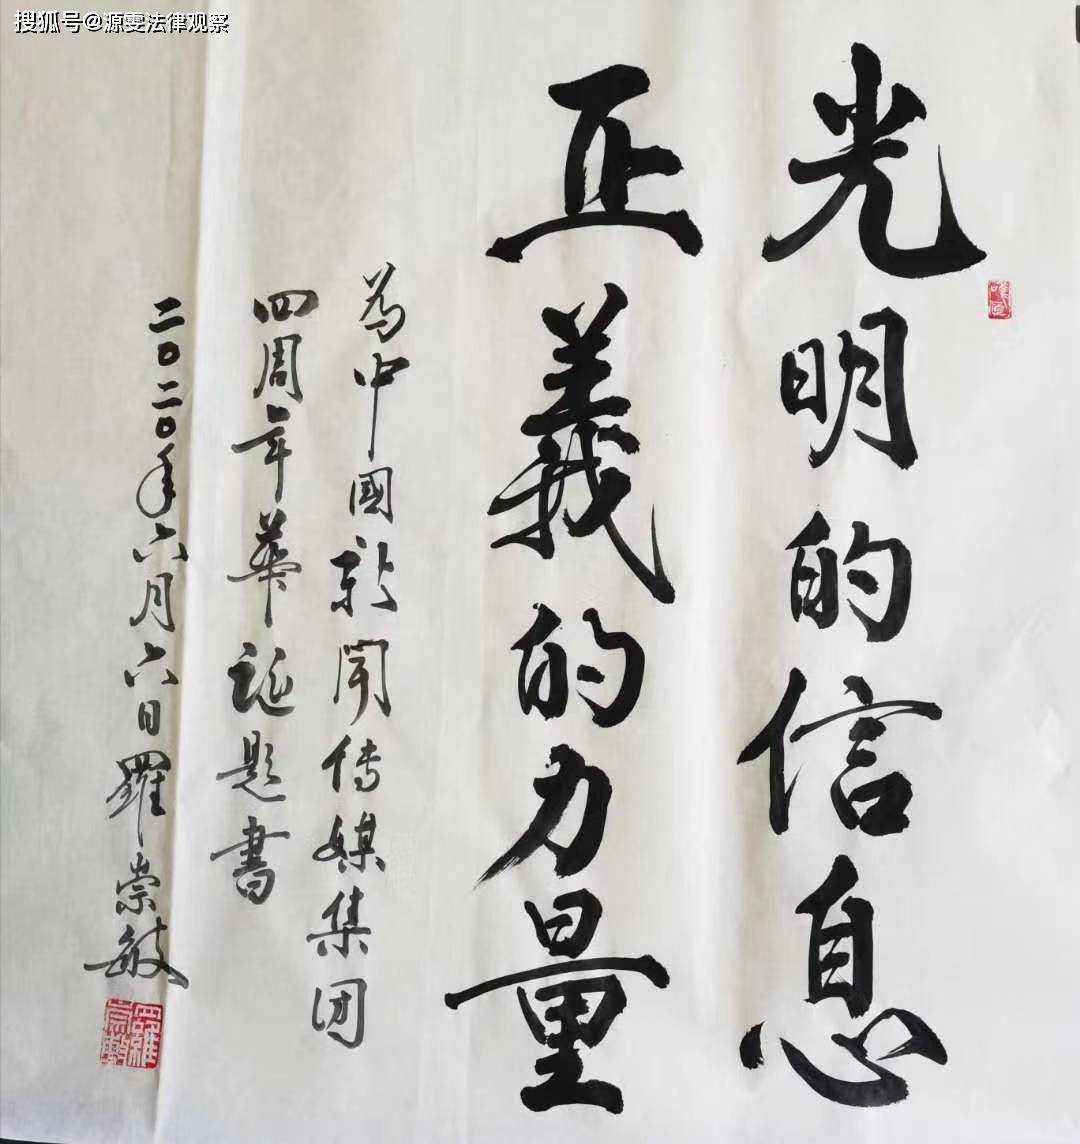 搜狐号@源雯法律观察
光明的信息
正義的力量
為中國新聞传媒集团
四周年華诞题書
二〇二〇年六月六日羅崇敏
羅崇敏